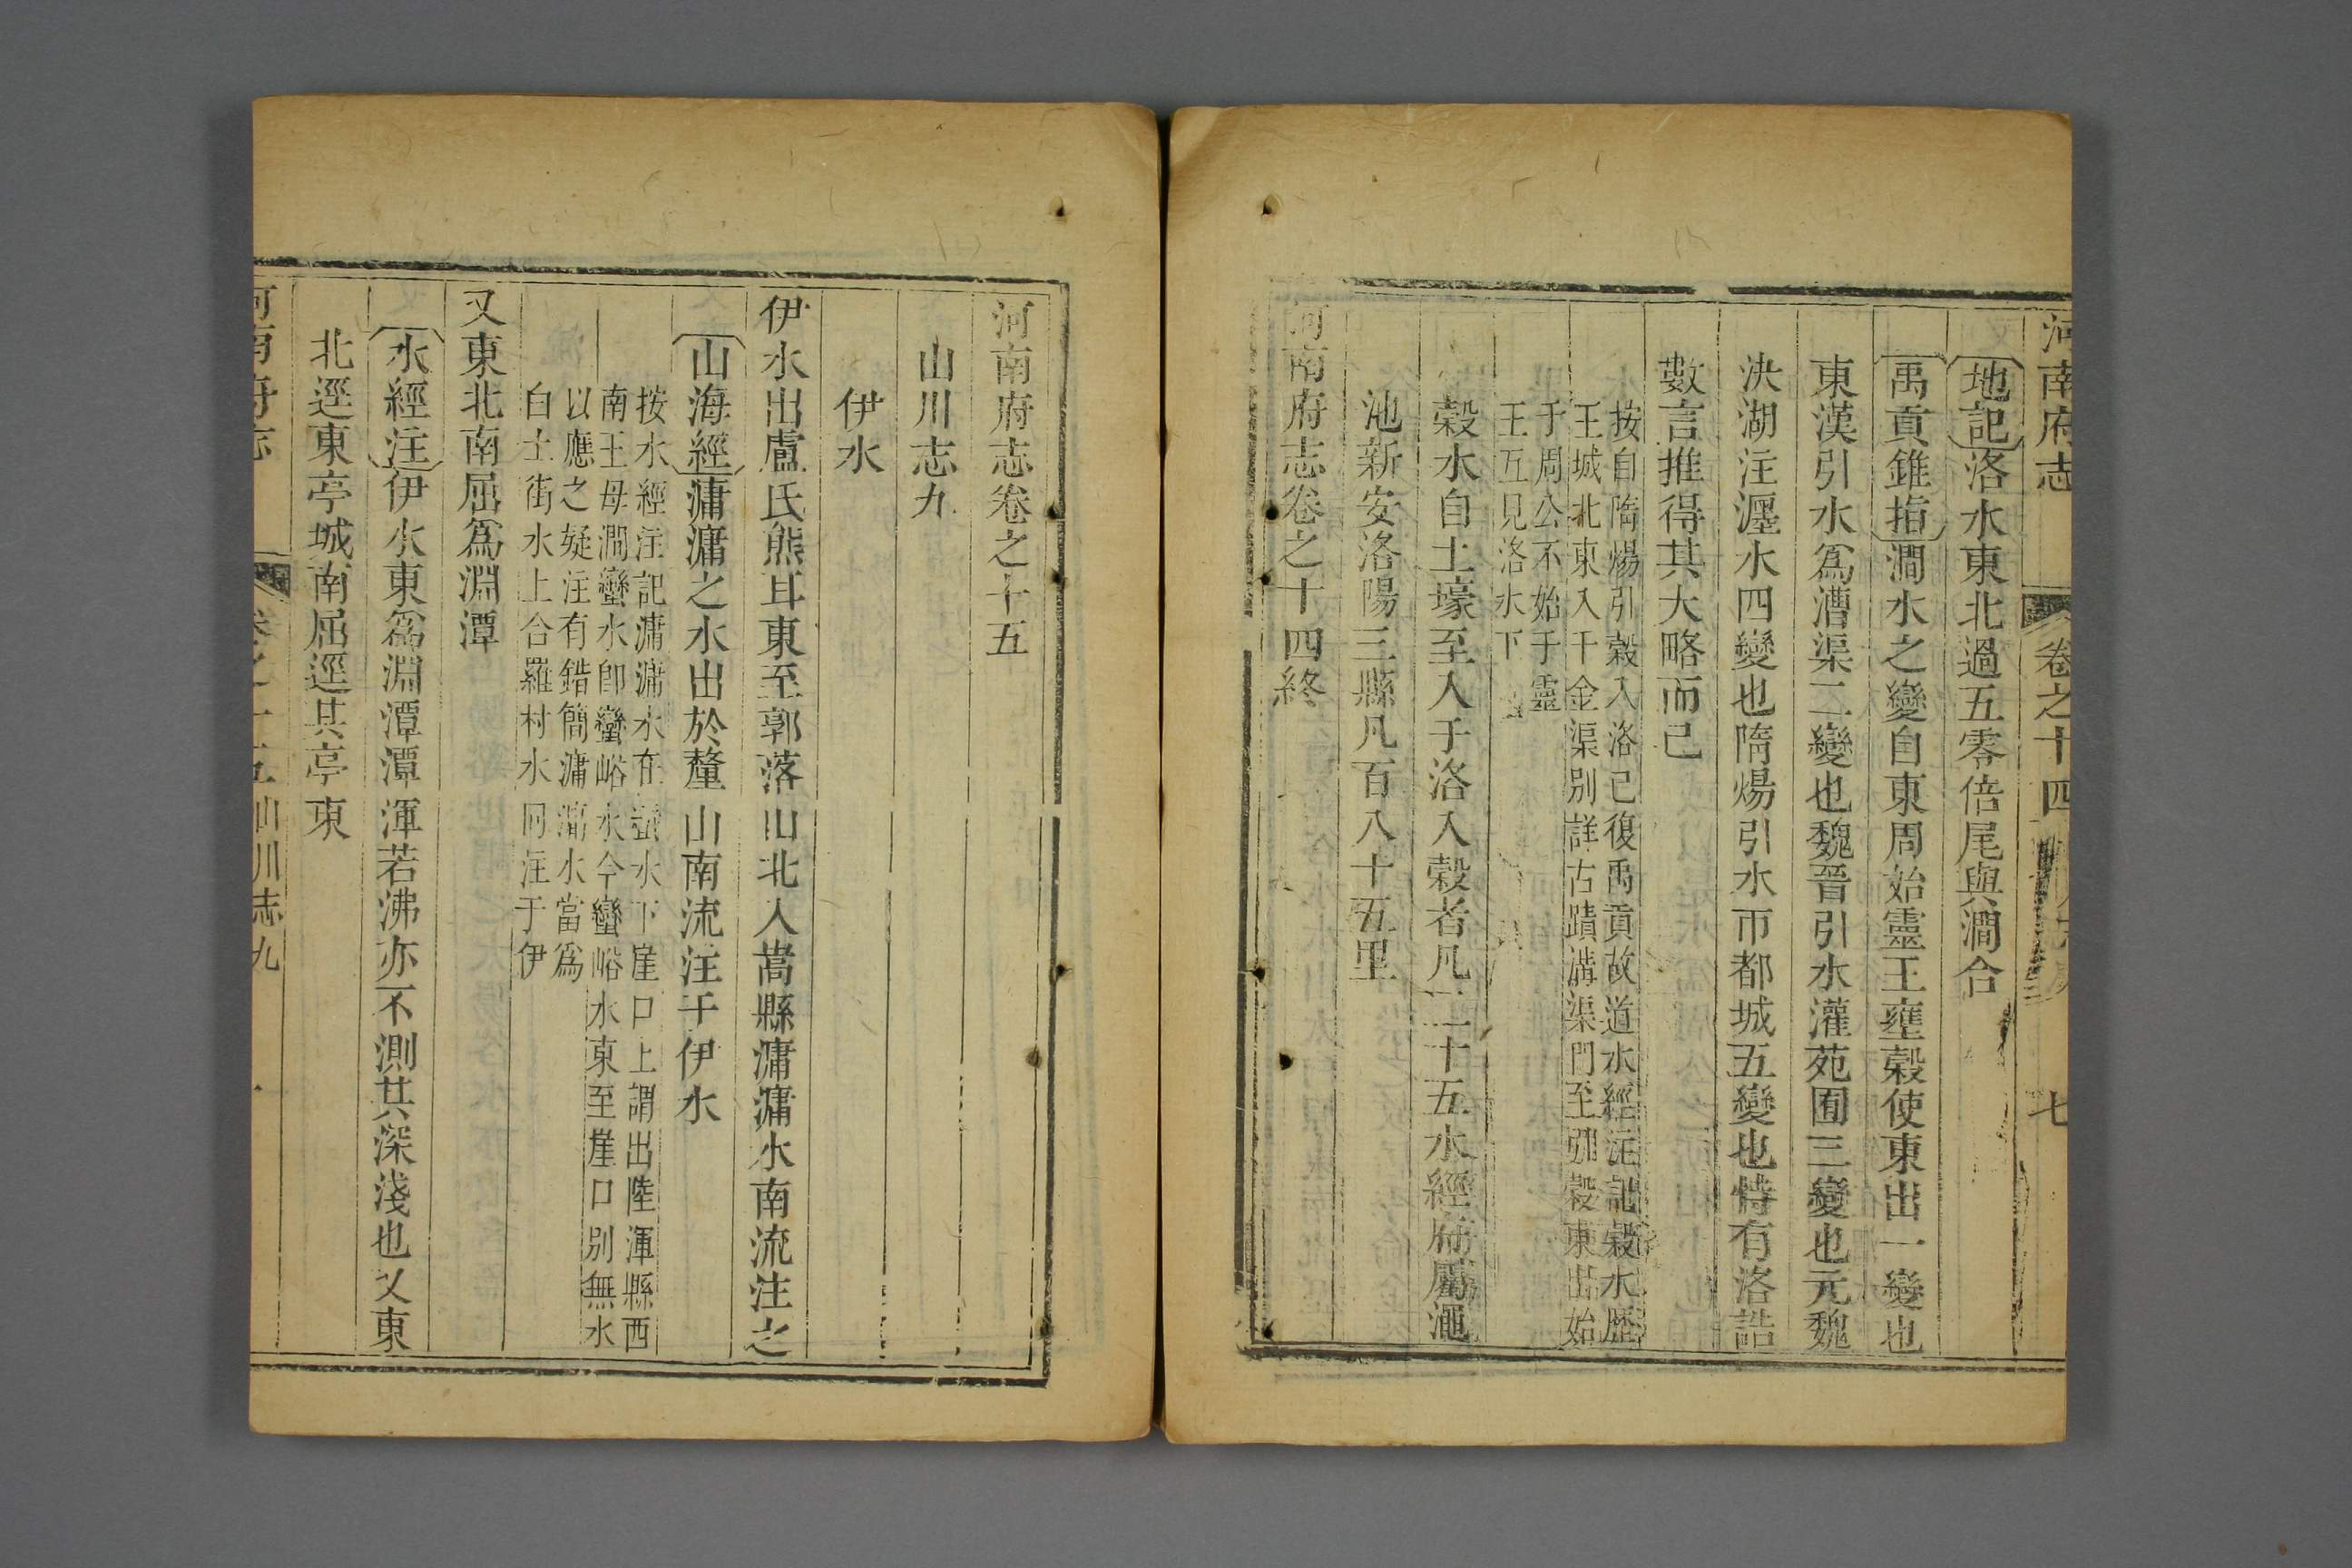 河南府志
卷之十四
七
地記洛水東北過五零倍尾與澗合
禹貢錐指澗水之變自東周始靈王壅穀使東出一變也
東漢引水為漕渠二變也魏晉引水灌苑囿三變也元魏
決湖注瀍水四變也隋煬引水帀都城五變也特有洛誥
數言推得其大略而已
按自隋煬引穀入洛已復禹貢故道水經注記穀水歷
王城北東入千金渠別詳古蹟溝渠門至弭穀東出始
于周公不始于靈
王互見洛水下
穀水自土壕至入于洛入穀者凡二十五水經府屬澠
池新安洛陽三縣凡百八十五里
河南府志卷之十四終
河南府志卷之十五
山川志九
伊水
伊水出盧氏熊耳東至郭落山北入嵩縣滽滽水南流注之
山海經滽滽之水出於釐山南流注于伊水
按水經注記滽滽水在
水下崖口上謂出陸渾縣西
南王母澗蠻水卽蠻峪水今蠻峪水東至崖口別無水
以應之疑注有錯簡滽滽水當爲
白土街水上合羅村水同注于伊
又東北南屈爲淵潭
水經注伊水東爲淵潭潭渾若沸亦不測其深淺也又東
北逕東亭城南屈逕其亭東
河南府志
卷之十五
山川志九
一